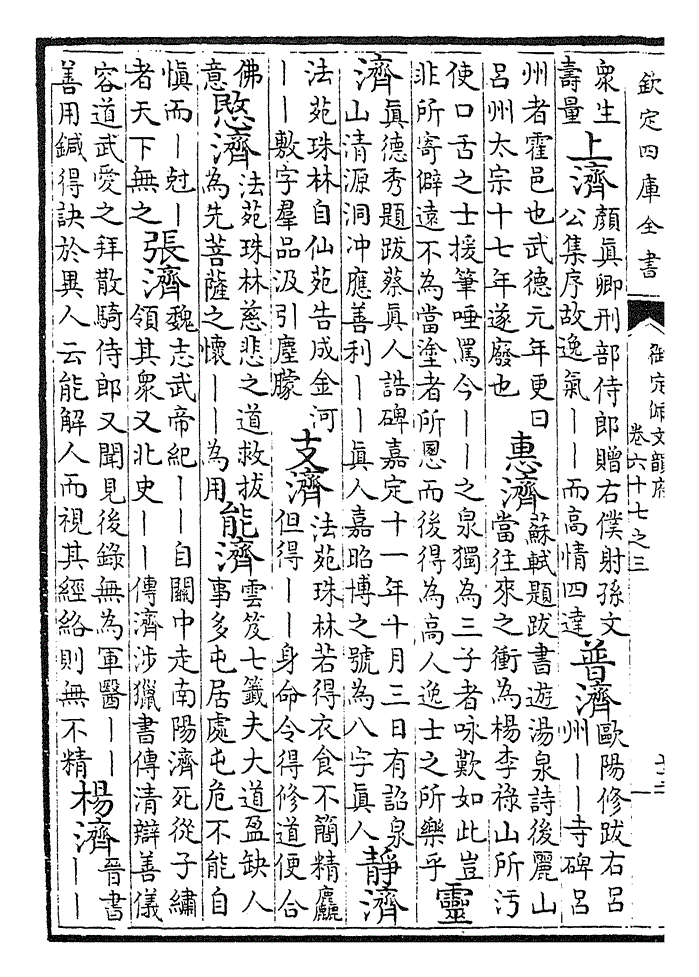 欽定四庫全書
御定佩文韻府
卷六十七之三
衆生
壽量
上濟
顔真卿刑部侍郎贈右僕射孫文
公集序故逸氣——而高情四達
普濟
歐陽修跋右吕
州——寺碑吕
州者霍邑也武德元年更曰
吕州太宗十七年遂廢也
惠濟
蘇軾題跋書遊湯泉詩後麗山
當往來之衝為楊李祿山所汚
使口舌之士援筆唾罵今——之泉獨為三子者咏歎如此豈
非所寄僻遠不為當塗者所慁而後得為高人逸士之所樂乎
靈
濟
真德秀題跋蔡真人誥碑嘉定十一年十月三日有詔泉
山清源洞沖應善利——真人嘉昭博之號為八字真人
靜濟
法苑珠林自仙苑告成金河
——敷字羣品汲引塵朦
支濟
法苑珠林若得衣食不簡精麤
但得——身命令得修道便合
佛
意
愍濟
法苑珠林慈悲之道救拔
為先菩薩之懷——為用
能濟
雲笈七籤夫大道盈缺人
事多屯居處屯危不能自
慎而—尅—
者天下無之
張濟
魏志武帝紀——自關中走南陽濟死從子繡
領其衆又北史——傳濟涉獵書傳清辯善儀
容道武愛之拜散騎侍郎又聞見後錄無為軍醫——
善用鍼得訣於異人云能解人而視其經絡則無不精
楊濟
晉書
——